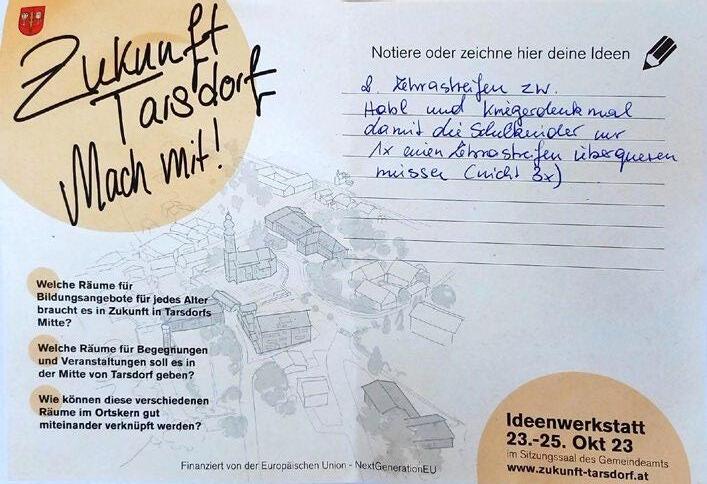 Zukunft
Tarsdorf
Mach mit!
Notiere oder zeichne hier deine Ideen
2. Zebrastreifen zw.
Habl und Kriegerdenkmal
damit die Schulkinder nur
1x einen Zebrastreifen überqueren
müssen (nicht 3x)
Welche Räume für
Bildungsangebote für jedes Alter
braucht es in Zukunft in Tarsdorfs
Mitte?
Welche Räume für Begegnungen
und Veranstaltungen soll es in
der Mitte von Tarsdorf geben?
Wie können diese verschiedenen
Räume im Ortskern gut
miteinander verknüpft werden?
Ideenwerkstatt
23.-25. Okt 23
im Sitzungssaal des Gemeindeamts
www.zukunft-tarsdorf.at
Finanziert von der Europäischen Union - NextGenerationEU